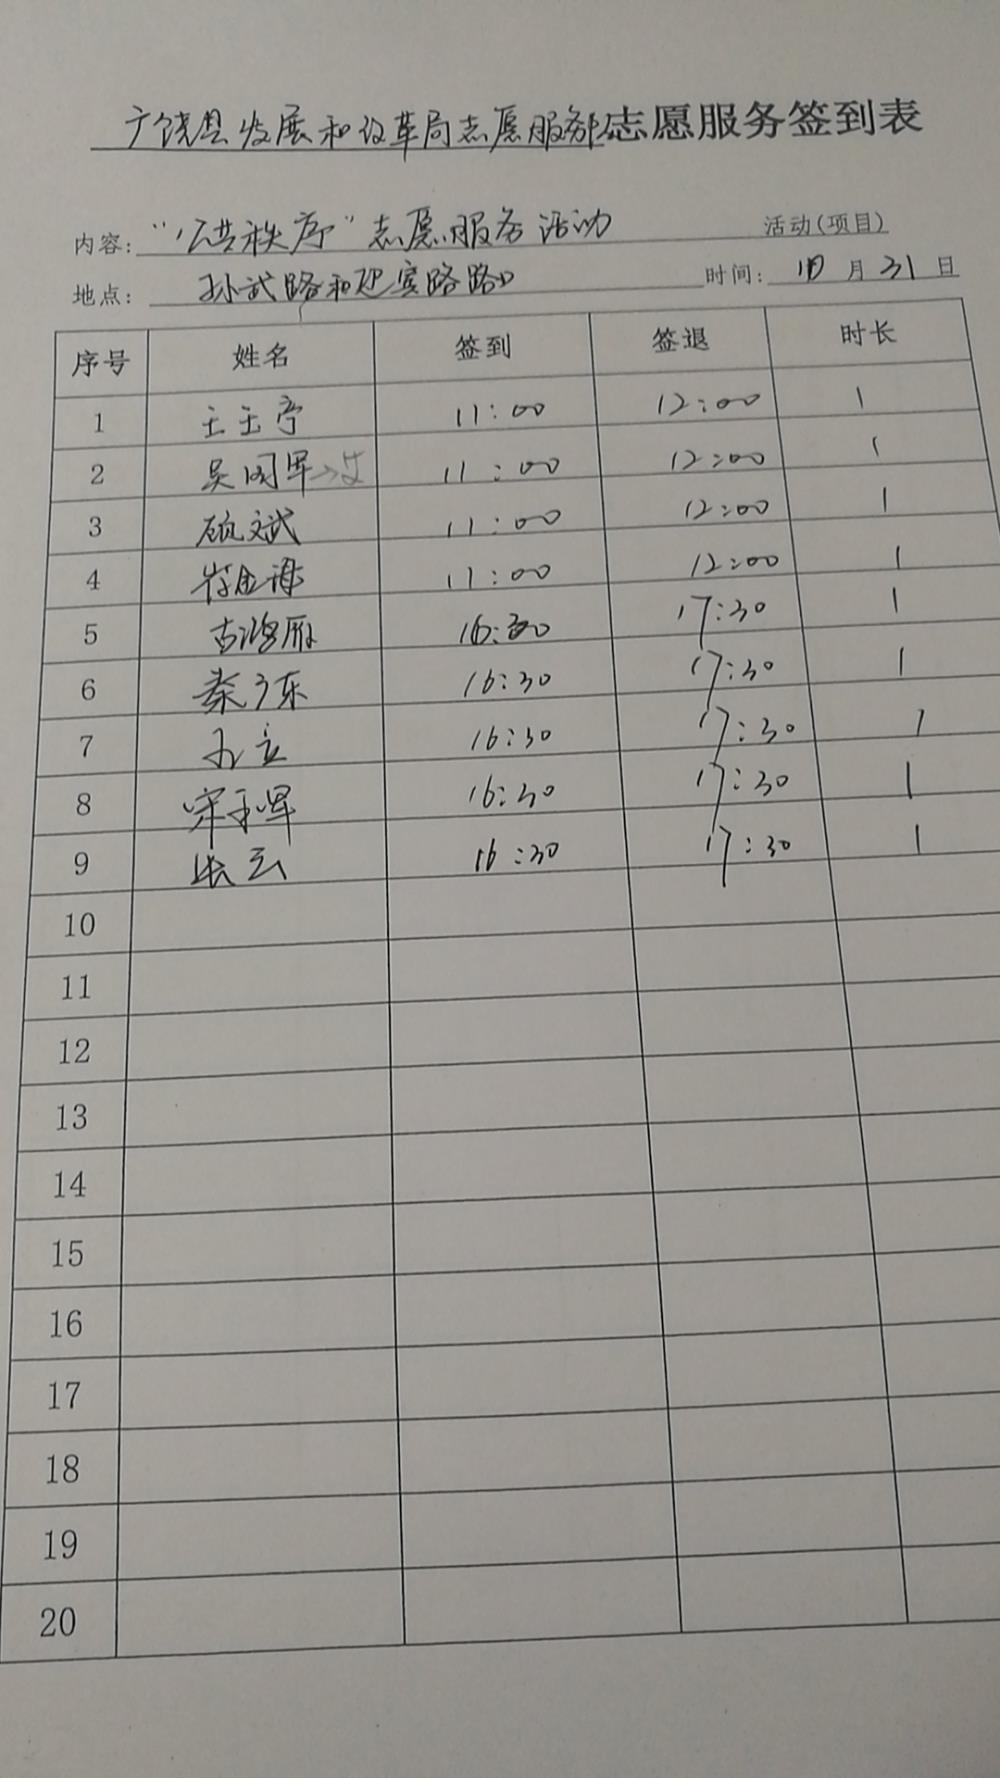 广饶县发展和改革局志愿服务队志愿服务签到表
内容：“公共秩序”志愿服务活动 活动(项目)
地点：孙武路和迎宾路路口 时间：10月31日
序号 姓名 签到 签退 时长
1 王玉亭 11:00 12:00 1
2 吴国军 11:00 12:00 1
3 顾文斌 11:00 12:00 1
4 崔金海 11:00 12:00 1
5 古鸿雁 16:30 17:30 1
6 秦广东 16:30 17:30 1
7 16:30 17:30 1
8 宋玉军 16:30 17:30 1
9 张云 16:30 17:30 1
10
11
12
13
14
15
16
17
18
19
20